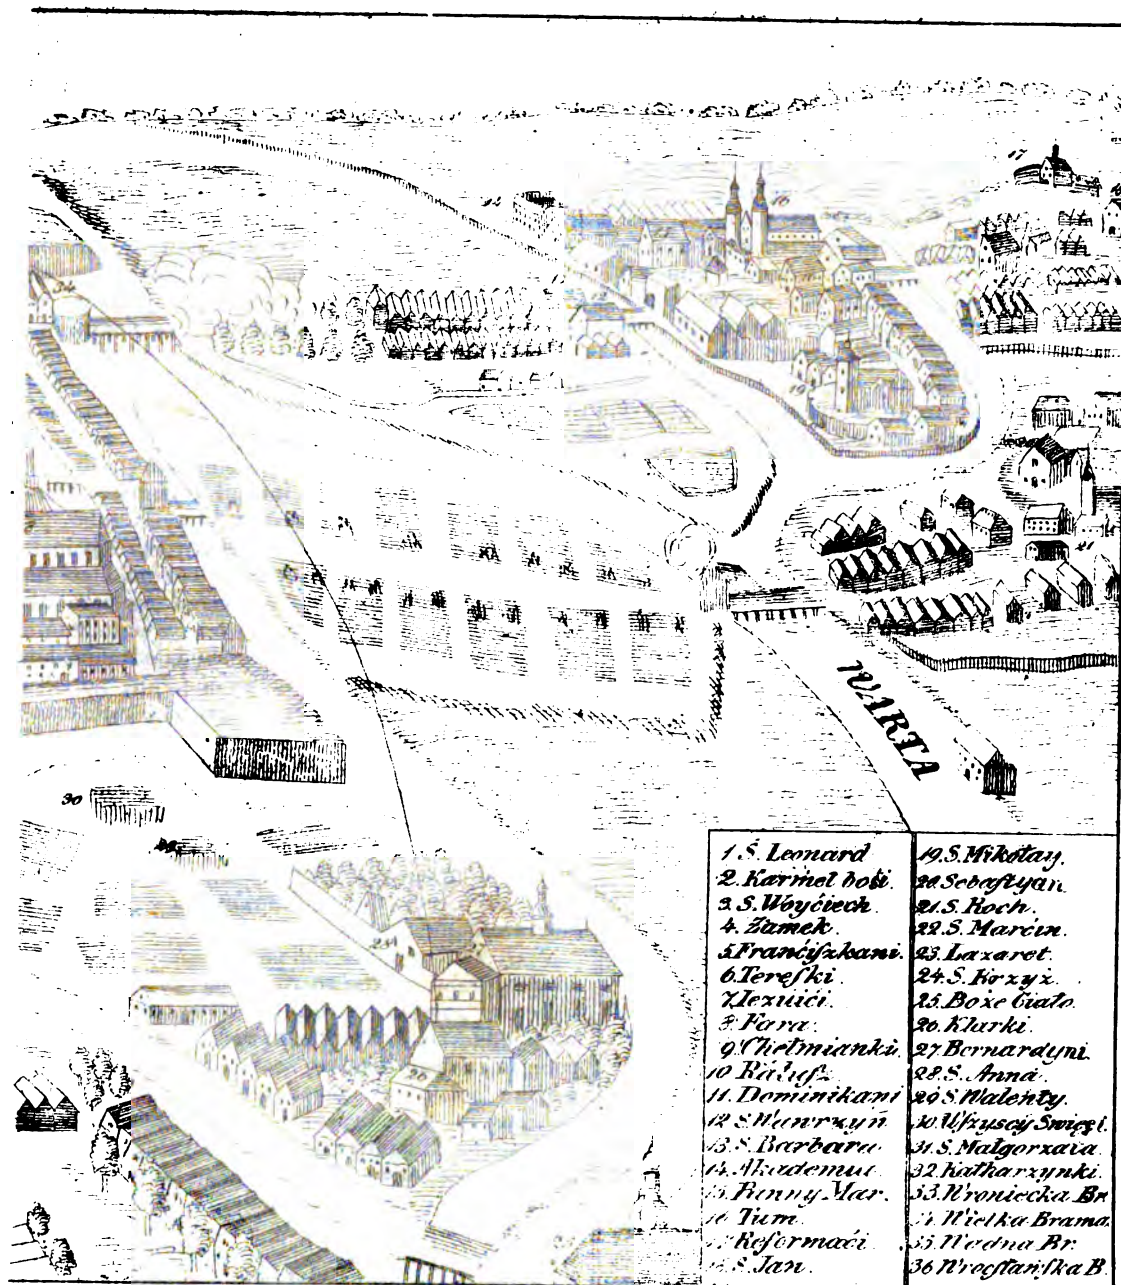 17
16
34
19
21
WARTA
30
25
20
1 S. Leonard
2. Karmel bosi.
3. S. Woyciech.
4. Zamek.
5 Franciſzkani.
6. Tereſki
7. Iezuici.
8. Fara.
9. Chełmianki.
10 Ratuſz
11. Dominikani
12 S. Wawrzyn
13. S. Barbara
14. Akademia
15. Panny Mar.
16 Tum.
17 Reformaci
18 S. Jan.
19. S. Mikołay.
20. Sebaſtyan.
21. S. Roch.
22 S. Marcin.
23. Lazaret.
24. S. Krzyż.
25. Boże Ciało.
26. Klarki.
27. Bernardyni.
28. S. Anna.
29 S. Walenty.
30. Wſzyscy Swięci.
31. S. Małgorzata.
32 Katharzynki.
33. Wroniecka Br
34 Wielka Brama.
35. Wodna Br.
36 Wrocłanſka B.